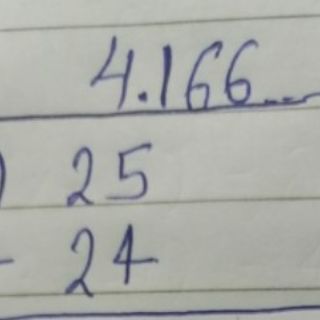 4.166...
) 25
- 24